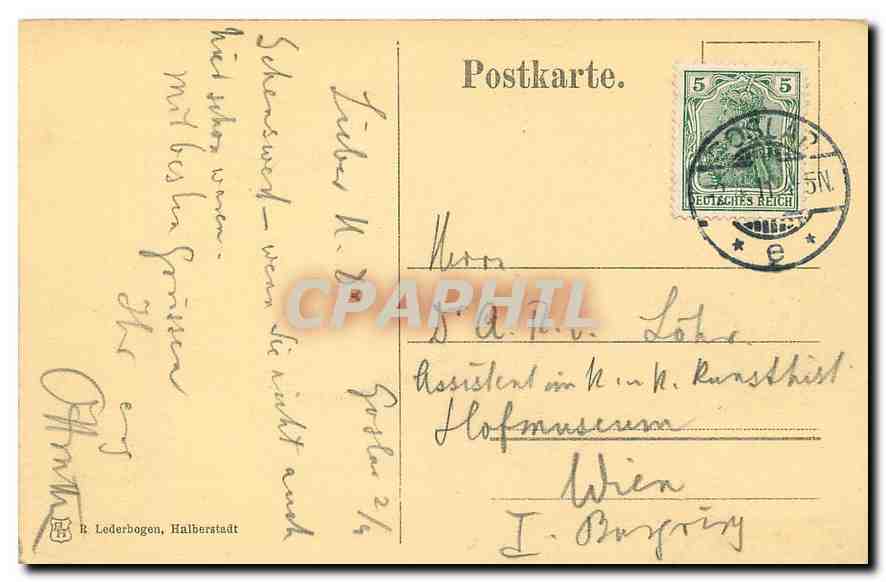 Postkarte.
5 5
DEUTSCHES REICH
GOSLAR
11 5N.
* e *
Goslar 2/9
Lieber K. D.
Sehenswert – wenn Sie nicht auch
hier schon waren.
Mit besten Grüssen
Ihr
Herrn
Dr A. R. v. Löhr
Assistent im K. u. K. Kunsthist
Hofmuseum
Wien
I. Burgring
R. Lederbogen, Halberstadt
CPAPHIL